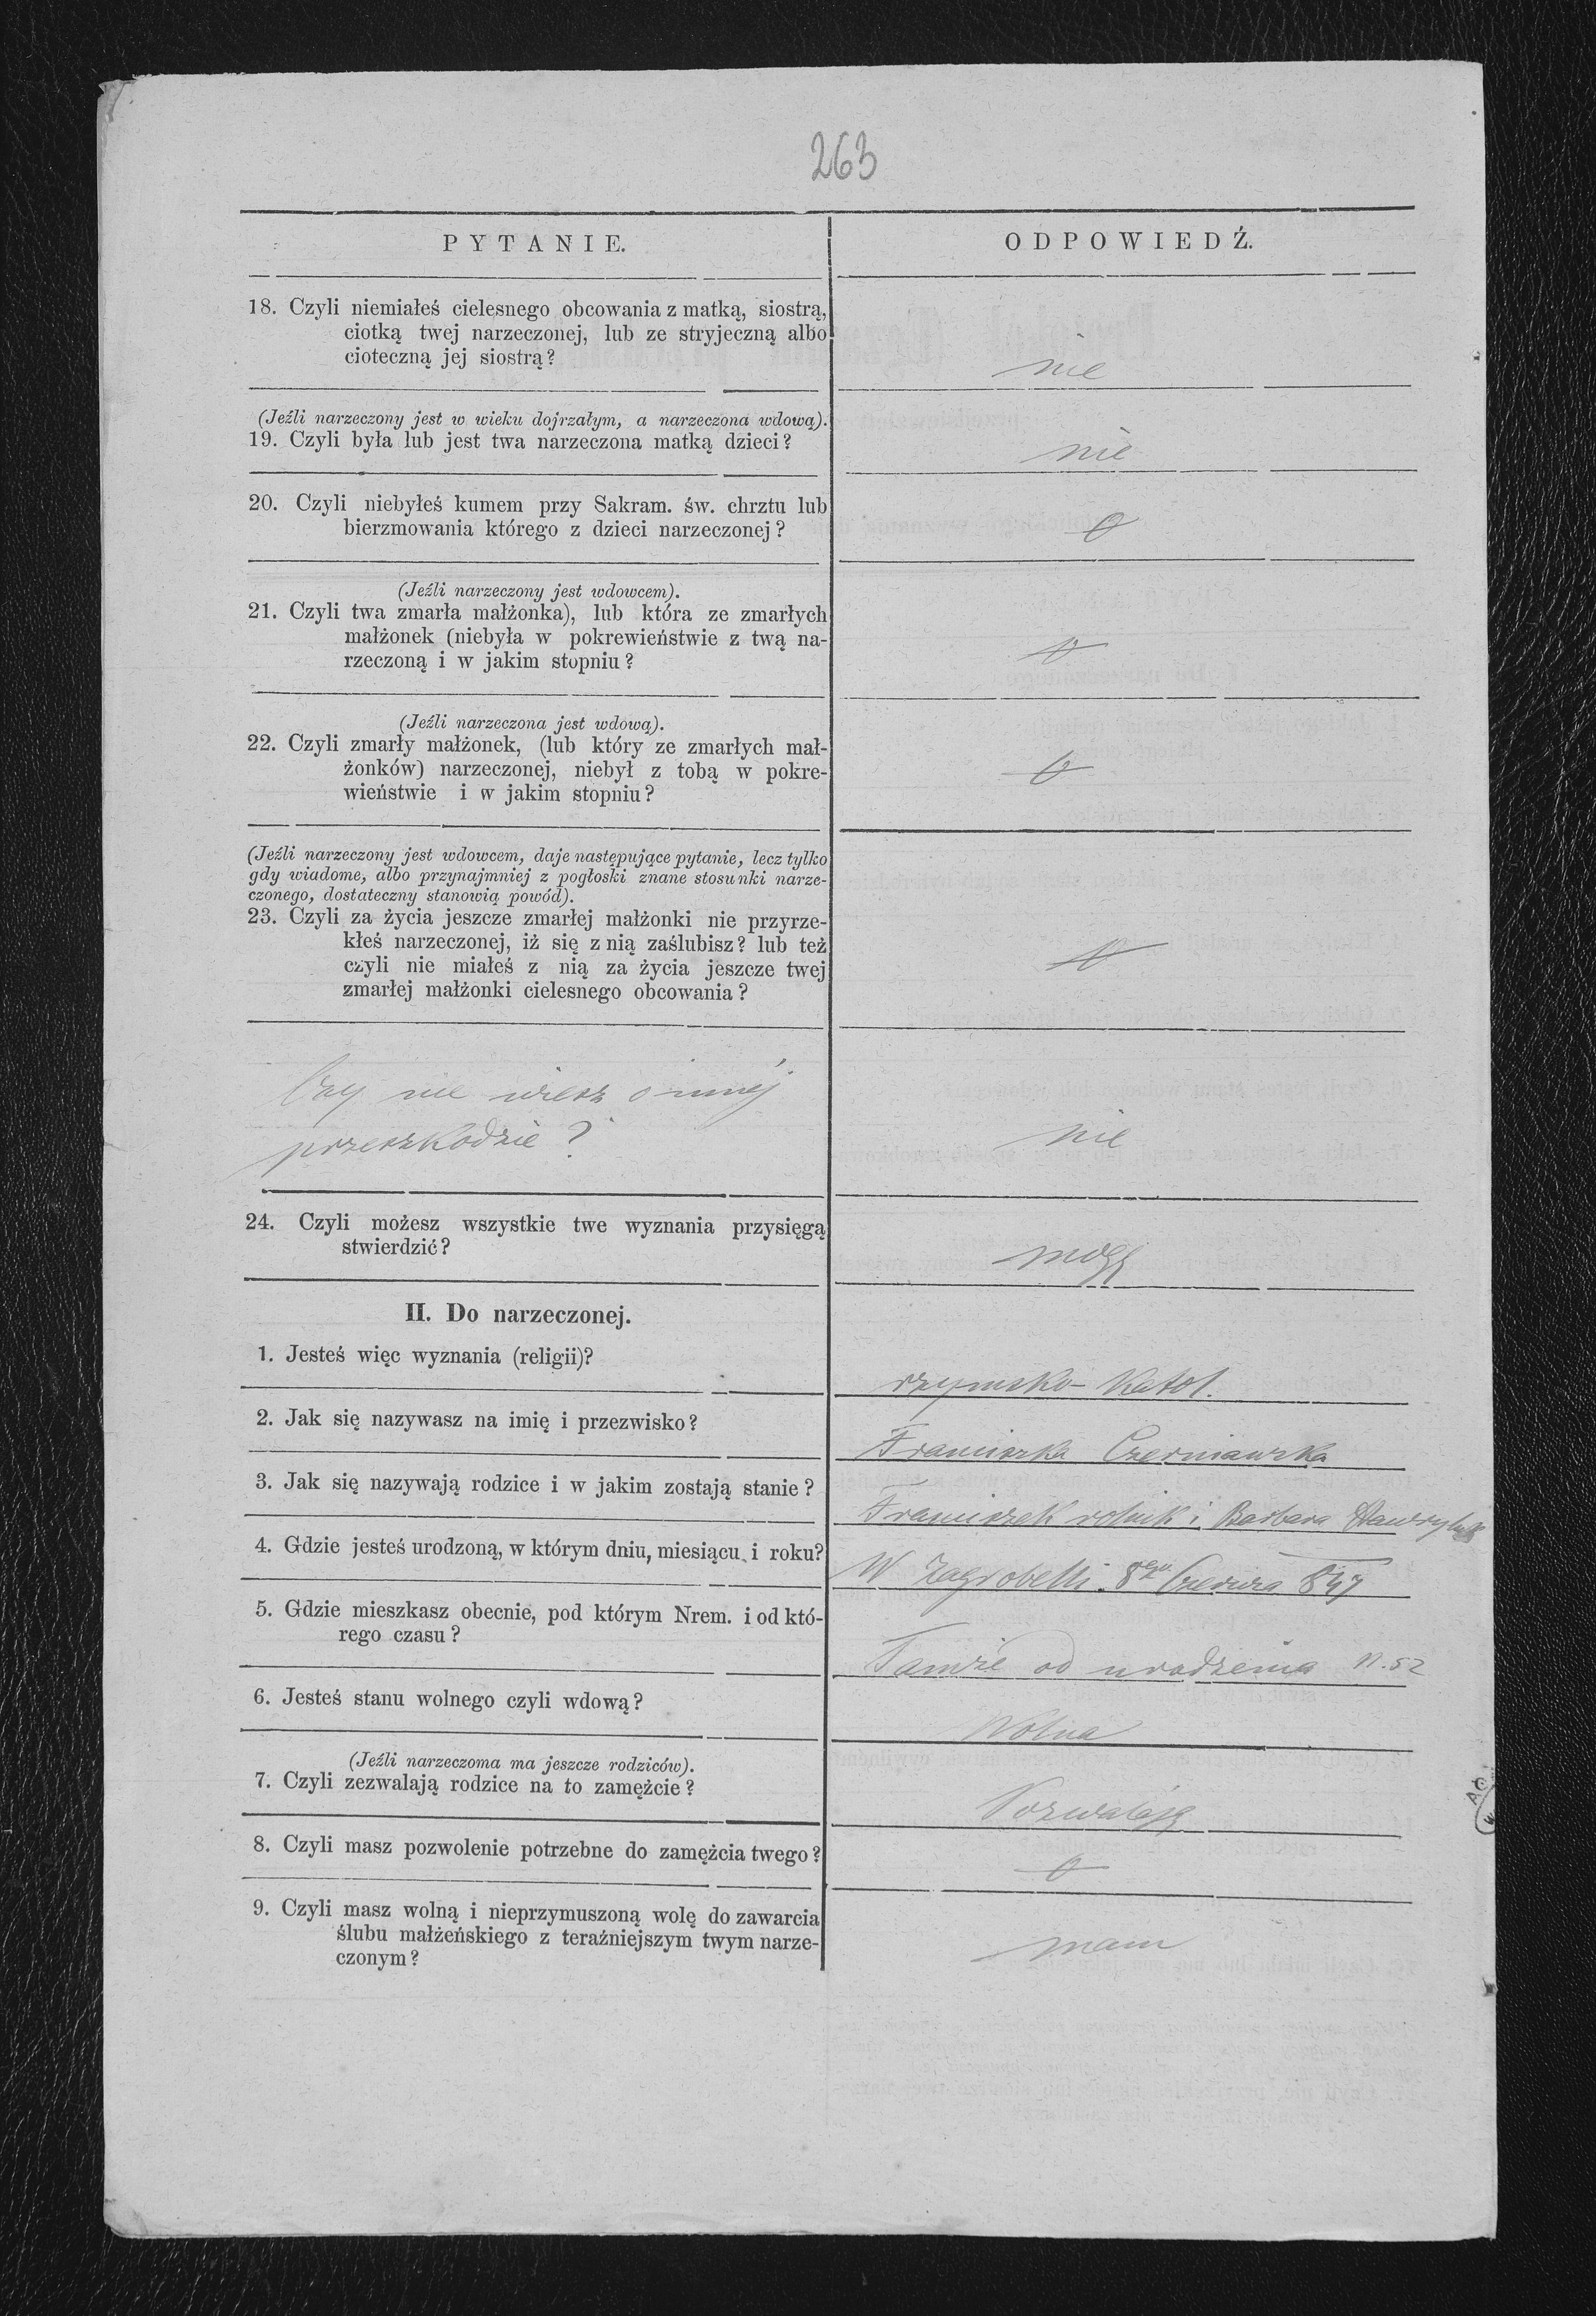 263
PYTANIE.
ODPOWIEDŹ.
18. Czyli niemiałeś cielesnego obcowania z matką, siostrą,
ciotką twej narzeczonej, lub ze stryjeczną albo
cioteczną jej siostrą?
nie
(Jeźli narzeczony jest w wieku dojrzałym, a narzeczona wdową).
19. Czyli była lub jest twa narzeczona matką dzieci?
nie
20. Czyli niebyłeś kumem przy Sakram. św. chrztu lub
bierzmowania którego z dzieci narzeczonej?
0
(Jeźli narzeczony jest wdowcem).
21. Czyli twa zmarła małżonka), lub która ze zmarłych
małżonek (niebyła w pokrewieństwie z twą na-
rzeczoną i w jakim stopniu?
0
(Jeźli narzeczona jest wdową).
22. Czyli zmarły małżonek, (lub który ze zmarłych mał-
żonków) narzeczonej, niebył z tobą w pokre-
wieństwie i w jakim stopniu?
0
(Jeźli narzeczony jest wdowcem, daje następujące pytanie, lecz tylko
gdy wiadome, albo przynajmniej z pogłoski znane stosunki narze-
czonego, dostateczny stanowią powód).
23. Czyli za życia jeszcze zmarłej małżonki nie przyrze-
kłeś narzeczonej, iż się z nią zaślubisz? lub też
czyli nie miałeś z nią za życia jeszcze twej
zmarłej małżonki cielesnego obcowania?
0
Czy nie wiesz o innéj
przeszkodzie?
nie
24. Czyli możesz wszystkie twe wyznania przysięgą
stwierdzić?
mogę
II. Do narzeczonej.
1. Jesteś więc wyznania (religii)?
rzymsko-katol.
2. Jak się nazywasz na imię i przezwisko?
Franciszka Czerniawska
3. Jak się nazywają rodzice i w jakim zostają stanie?
Franciszek rolnik i Barbara
4. Gdzie jesteś urodzoną, w którym dniu, miesiącu i roku?
W Zagrobelli 8go Czerwca 847
5. Gdzie mieszkasz obecnie, pod którym Nrem. i od któ-
rego czasu?
Tamże od urodzenia n. 52
6. Jesteś stanu wolnego czyli wdową?
Wolna
(Jeźli narzeczoma ma jeszcze rodziców).
7. Czyli zezwalają rodzice na to zamężcie?
Pozwalają
8. Czyli masz pozwolenie potrzebne do zamężcia twego?
0
9. Czyli masz wolną i nieprzymuszoną wolę do zawarcia
ślubu małżeńskiego z teraźniejszym twym narze-
czonym?
mam